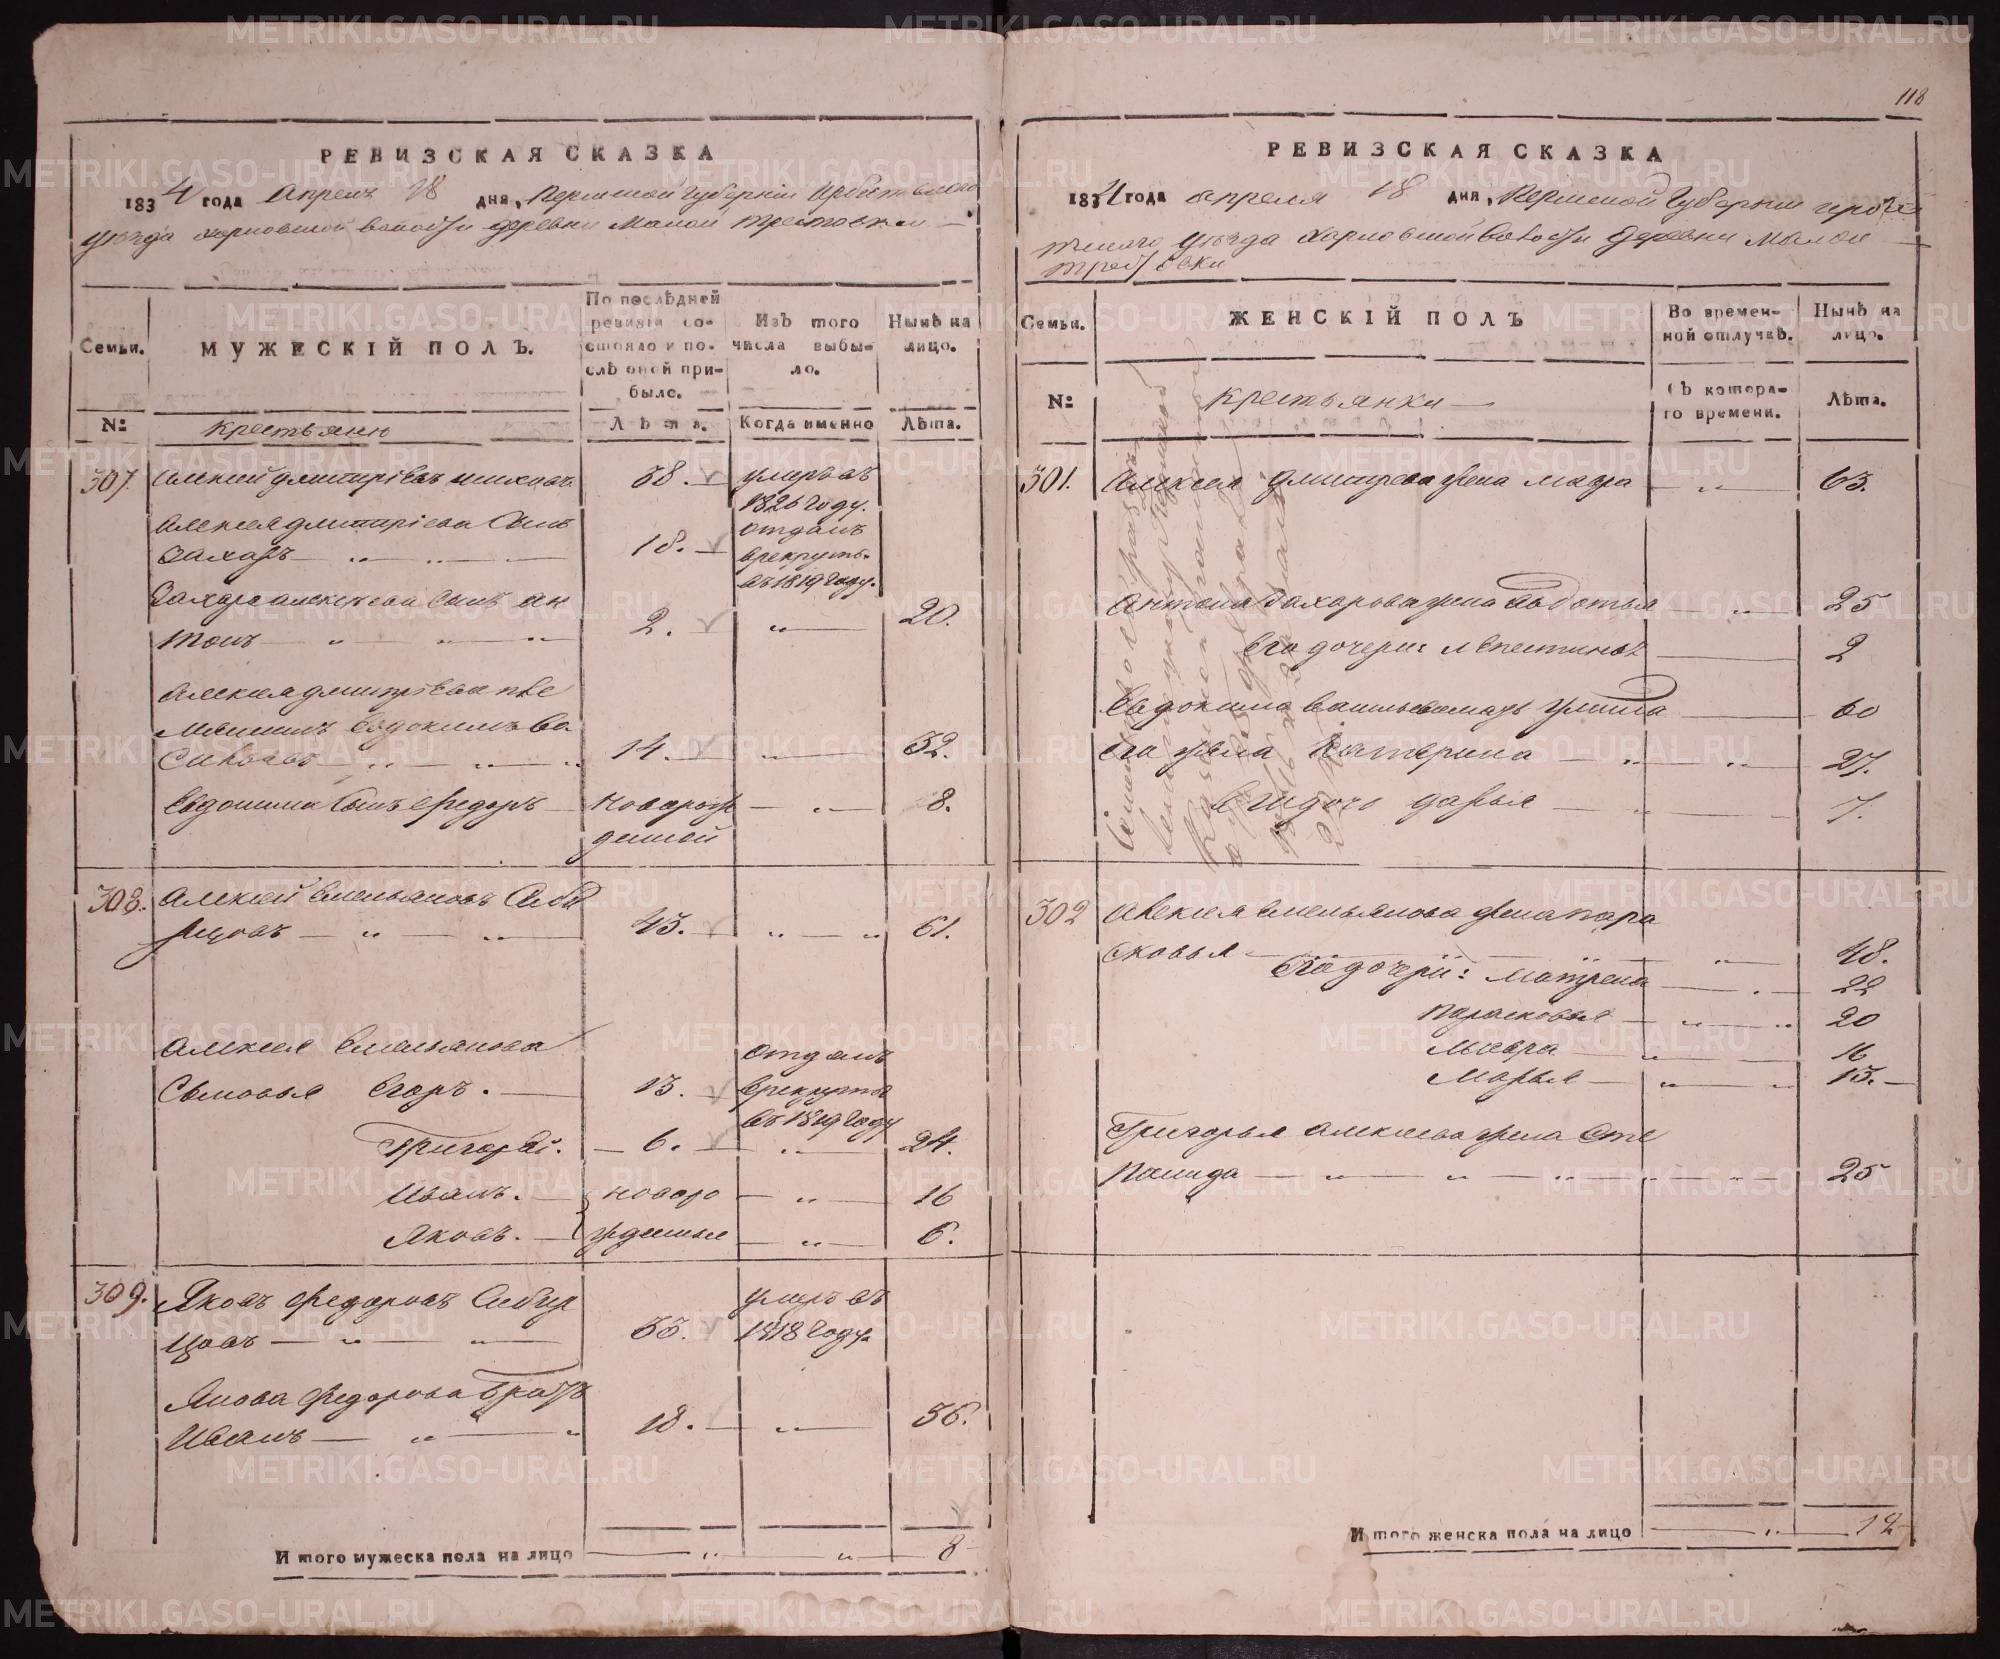 118
РЕВИЗСКАЯ СКАЗКА
1834 года Апреля 18 дня, Пермской Губернiи Ирбитскаго
уѣзда харловской волости деревни Малой Трестовки
Семьи.
МУЖЕСКIЙ ПОЛЪ.
По послѣдней ревизiи состояло и послѣ оной прибыло.
Изъ того числа выбыло.
Нынѣ на лицо.
№
Крестьяне
Лѣта.
Когда именно
Лѣта.
307. Алексей Дмитрiевъ 58. умеръ въ
1826 году.
Алексея Дмитрiева Сынъ отданъ
Захаръ 18. врекруты
въ 1819 году.
Захара алексеева сынъ ан
тонъ 2. 20.
Алексея дмитрiева пле
мянникъ Евдокимъ Ва
сильевъ 14. 32.
Евдокима Сынъ Федоръ новорож 8.
денной
308. Алексей Емельяновъ Сиби
рцовъ 45. 61.
Алексея Емельянова отданъ
Сыновья Егоръ. 13. врекруты
въ 1819 году
Григорей. 6. 24.
Иванъ. новоро 16
Яковъ. жденные 6.
309. Яковъ Федоровъ Сибир умеръ въ
цовъ 55. 1818 году.
Якова Федорова братъ
Иванъ 18. 36.
Итого мужеска пола на лицо 8
РЕВИЗСКАЯ СКАЗКА
1834 года апреля 18 дня, Пермской Губернiи ирбит
скаго уѣзда харловской волости деревни Малой
трестовки
Семьи.
ЖЕНСКIЙ ПОЛЪ
Во временной отлучкѣ.
Нынѣ на лицо.
№
Крестьянки
Съ котораго времени.
Лѣта.
301. Алексея Дмитрева жена мавра 63.
Антона Захарова жена Авдотья 25
Его дочери: 2
Евдокима васильева мать Улита 60
Его жена Катерина 27.
дочь дарья 7.
302 Алексея Емельянова жена пара
сковья 48.
Его дочери: Матрена 22
Парасковья 20
Мавра 16
Марья 13.
Григорья алексеева жена Сте
панида 25
Итого женска пола на лицо 12